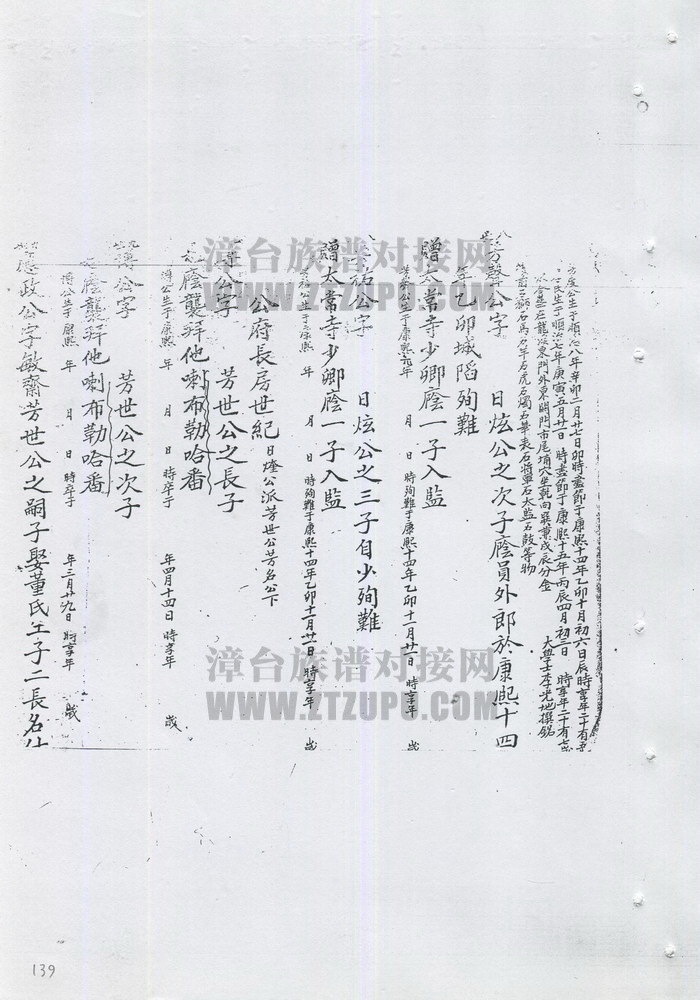 方度公生于順治八年辛卯二月廿七日卯時盡節于康熙十四年乙卯十月初六日辰時享年二十有五
氏生于順治七年庚寅五月廿一日 時盡節于康熙十五年丙辰四月初三日 時享年二十有七歲
合葬在龍溪東門外東閘門市尾埔穴坐乾向巽兼戌辰分金 大學士李光地撰銘
石獅石馬石羊石虎石燭石華表石將軍石太監石鼓等物
芳聲公字 日炫公之次子廕員外郎於康熙十四
年乙卯城陷殉難
贈太常寺少卿廕一子入監
公生于康熙元年 月 日 時殉難于康熙十四年乙卯十一月廿一 時享年 歲
祐公字 日炫公之三子自少殉難
贈太常寺少卿廕一子入監
公生于康熙 年 月 日 時殉難于康熙十四年乙卯十一月廿一 時享年 歲
公府長房世紀 日燈公派芳世公芳名公下
公字 芳世公之長子
廕襲拜他喇布勒哈番
公生于康熙 年 月 日 時卒于 年四月十四日 時享年 歲
溥公字 芳世公之次子
廕襲拜他喇布勒哈番
公生于康熙 年 月 日 時卒于 年二月廿九日 時享年 歲
應政公字敏齋芳世公之嗣子娶董氏生子二長名仕
漳台族谱对接网
WWW.ZTZUPU.COM
漳台族谱对接网
WWW.ZTZUPU.COM
139